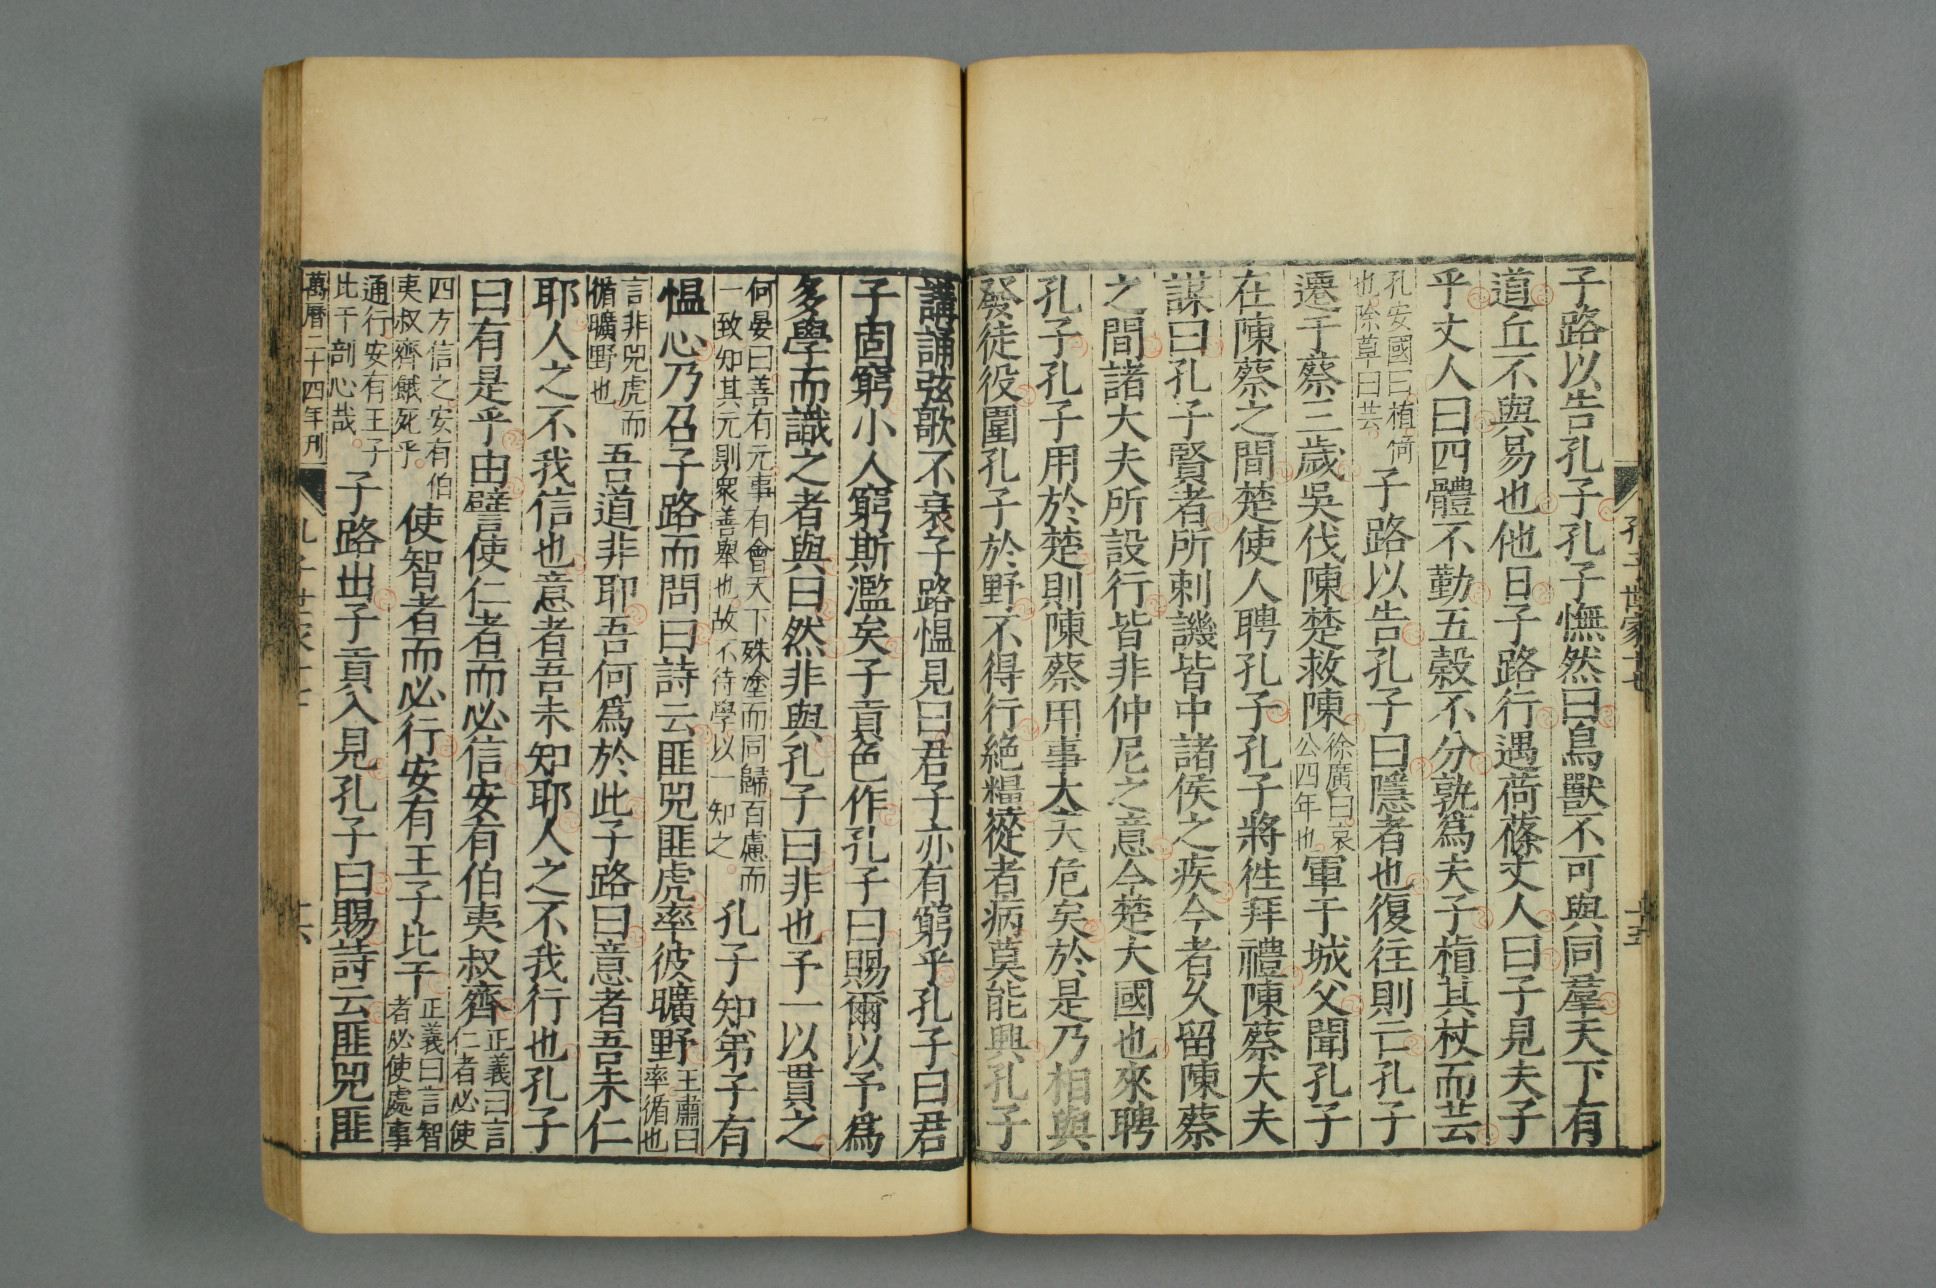 孔子世家十七
十五
子路以告孔子孔子憮然曰鳥獸不可與同羣天下有
道丘不與易也他日子路行遇荷蓧丈人曰子見夫子
乎丈人曰四體不勤五穀不分孰爲夫子植其杖而芸
孔安國曰植倚
也除草曰芸
子路以告孔子曰隱者也復往則亡孔子
遷于蔡三歲吳伐陳楚救陳
徐廣曰哀
公四年也
軍于城父聞孔子
在陳蔡之間楚使人聘孔子孔子將徃拜禮陳蔡大夫
謀曰孔子賢者所刺譏皆中諸侯之疾今者久留陳蔡
之間諸大夫所設行皆非仲尼之意今楚大國也來聘
孔子孔子用於楚則陳蔡用事大夫危矣於是乃相與
發徒役圍孔子於野不得行絶糧從者病莫能興孔子
講誦弦歌不衰子路慍見曰君子亦有窮乎孔子曰君
子固窮小人窮斯濫矣子貢色作孔子曰賜爾以予爲
多學而識之者與曰然非與孔子曰非也予一以貫之
何晏曰善有元事有會天下殊塗而同歸百慮而
一致知其元則衆善舉也故不待學以一知之
孔子知弟子有
慍心乃召子路而問曰詩云匪兕匪虎率彼曠野
王肅曰
率循也
言非兕虎而
循曠野也
吾道非耶吾何爲於此子路曰意者吾未仁
耶人之不我信也意者吾未知耶人之不我行也孔子
曰有是乎由譬使仁者而必信安有伯夷叔齊
正義曰言
仁者必使
四方信之安有伯
夷叔齊餓死乎
使智者而必行安有王子比干
正義曰言智
者必使處事
通行安有王子
比干剖心哉
子路出子貢入見孔子曰賜詩云匪兕匪
萬曆二十四年刊
孔子世家十七
十六